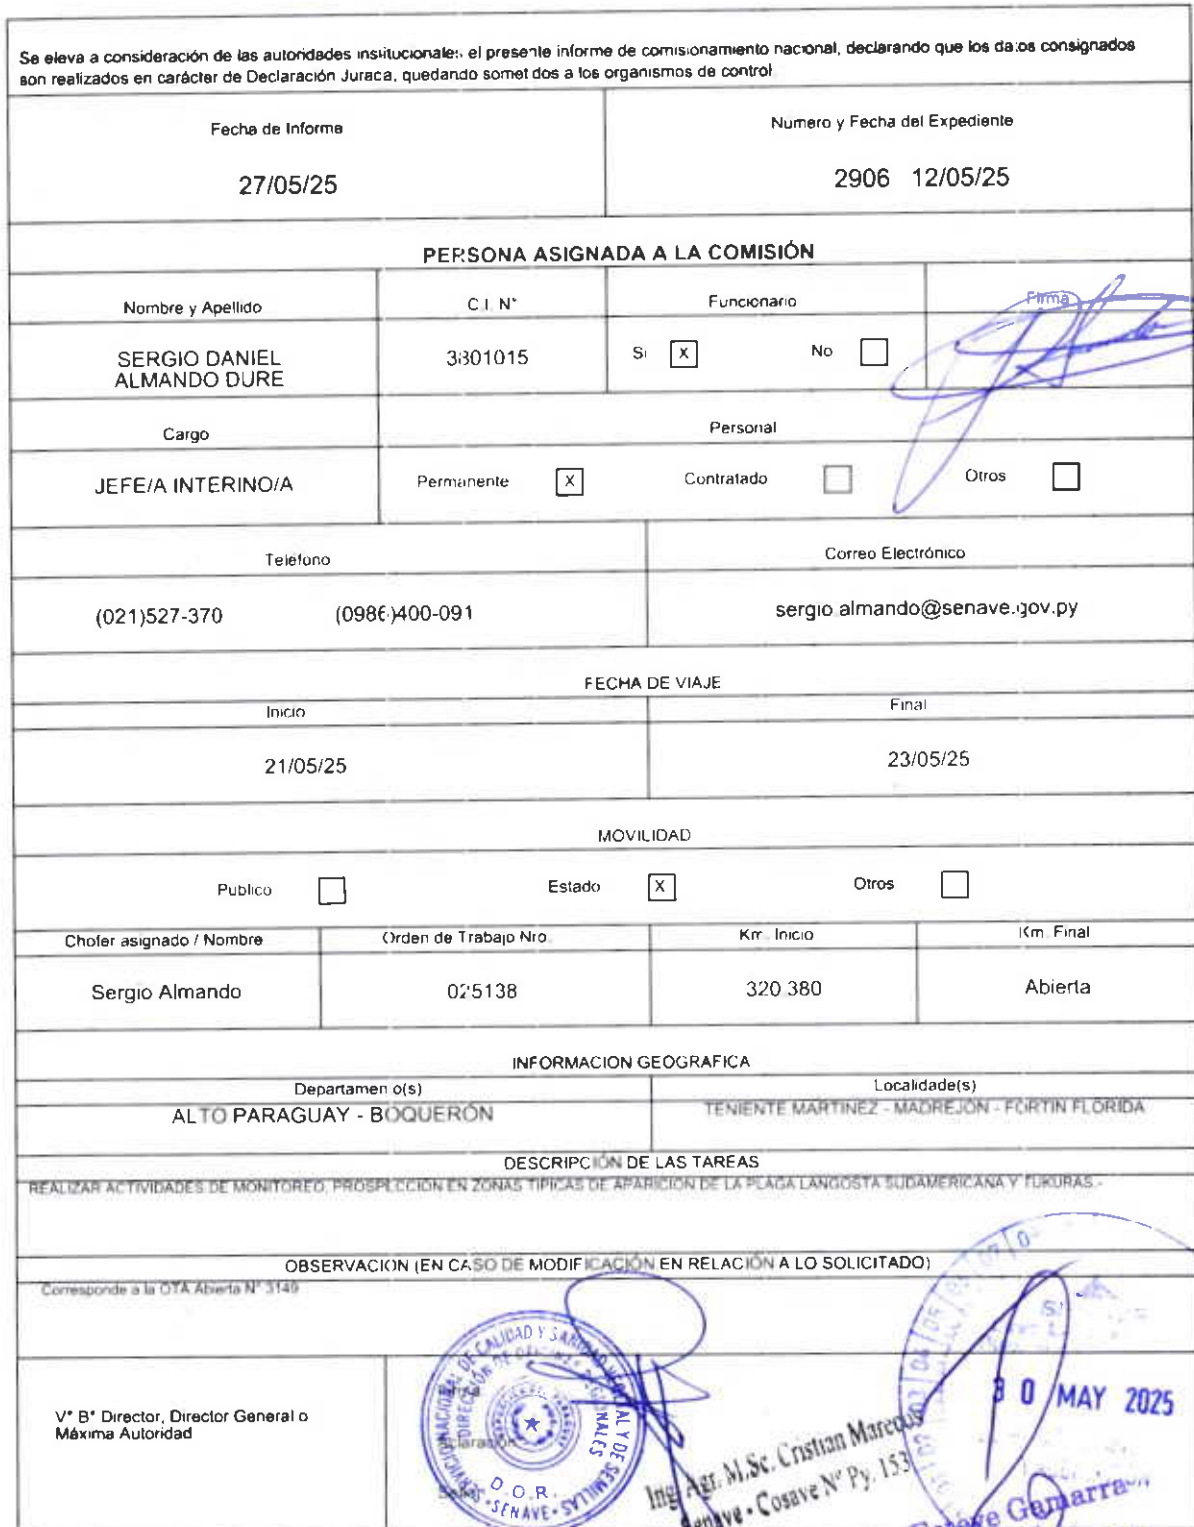 Se eleva a consideración de las autoridades institucionales el presente informe de comisionamiento nacional, declarando que los datos consignados
son realizados en carácter de Declaración Jurada, quedando sometidos a los organismos de control
Fecha de Informe
Numero y Fecha del Expediente
27/05/25
2906 12/05/25
PERSONA ASIGNADA A LA COMISIÓN
Nombre y Apellido
C.I. N°
Funcionario
Firma
SERGIO DANIEL
ALMANDO DURE
3801015
Si X
No
Cargo
Personal
JEFE/A INTERINO/A
Permanente X
Contratado
Otros
Teléfono
Correo Electrónico
(021)527-370 (0986)400-091
sergio.almando@senave.gov.py
FECHA DE VIAJE
Inicio
Final
21/05/25
23/05/25
MOVILIDAD
Publico
Estado X
Otros
Chofer asignado / Nombre
Orden de Trabajo Nro.
Km. Inicio
Km. Final
Sergio Almando
025138
320.380
Abierta
INFORMACION GEOGRAFICA
Departamento(s)
Localidade(s)
ALTO PARAGUAY - BOQUERÓN
TENIENTE MARTINEZ - MADREJÓN - FORTIN FLORIDA
DESCRIPCIÓN DE LAS TAREAS
REALIZAR ACTIVIDADES DE MONITOREO, PROSPECCIÓN EN ZONAS TIPICAS DE APARICION DE LA PLAGA LANGOSTA SUDAMERICANA Y TUKURAS.-
OBSERVACION (EN CASO DE MODIFICACIÓN EN RELACIÓN A LO SOLICITADO)
Corresponde a la OTA Abierta N° 3149
V° B° Director, Director General o
Máxima Autoridad
Firma
Aclaración
Sello
SERVICIO NACIONAL DE CALIDAD Y SANIDAD VEGETAL Y DE SEMILLAS
DIRECCIÓN DE OFICINAS REGIONALES
D.O.R.
SENAVE
Ing. Agr. M.Sc. Cristian Marecos
Senave - Cosave N° Py. 153
30 MAY 2025
Gamarra